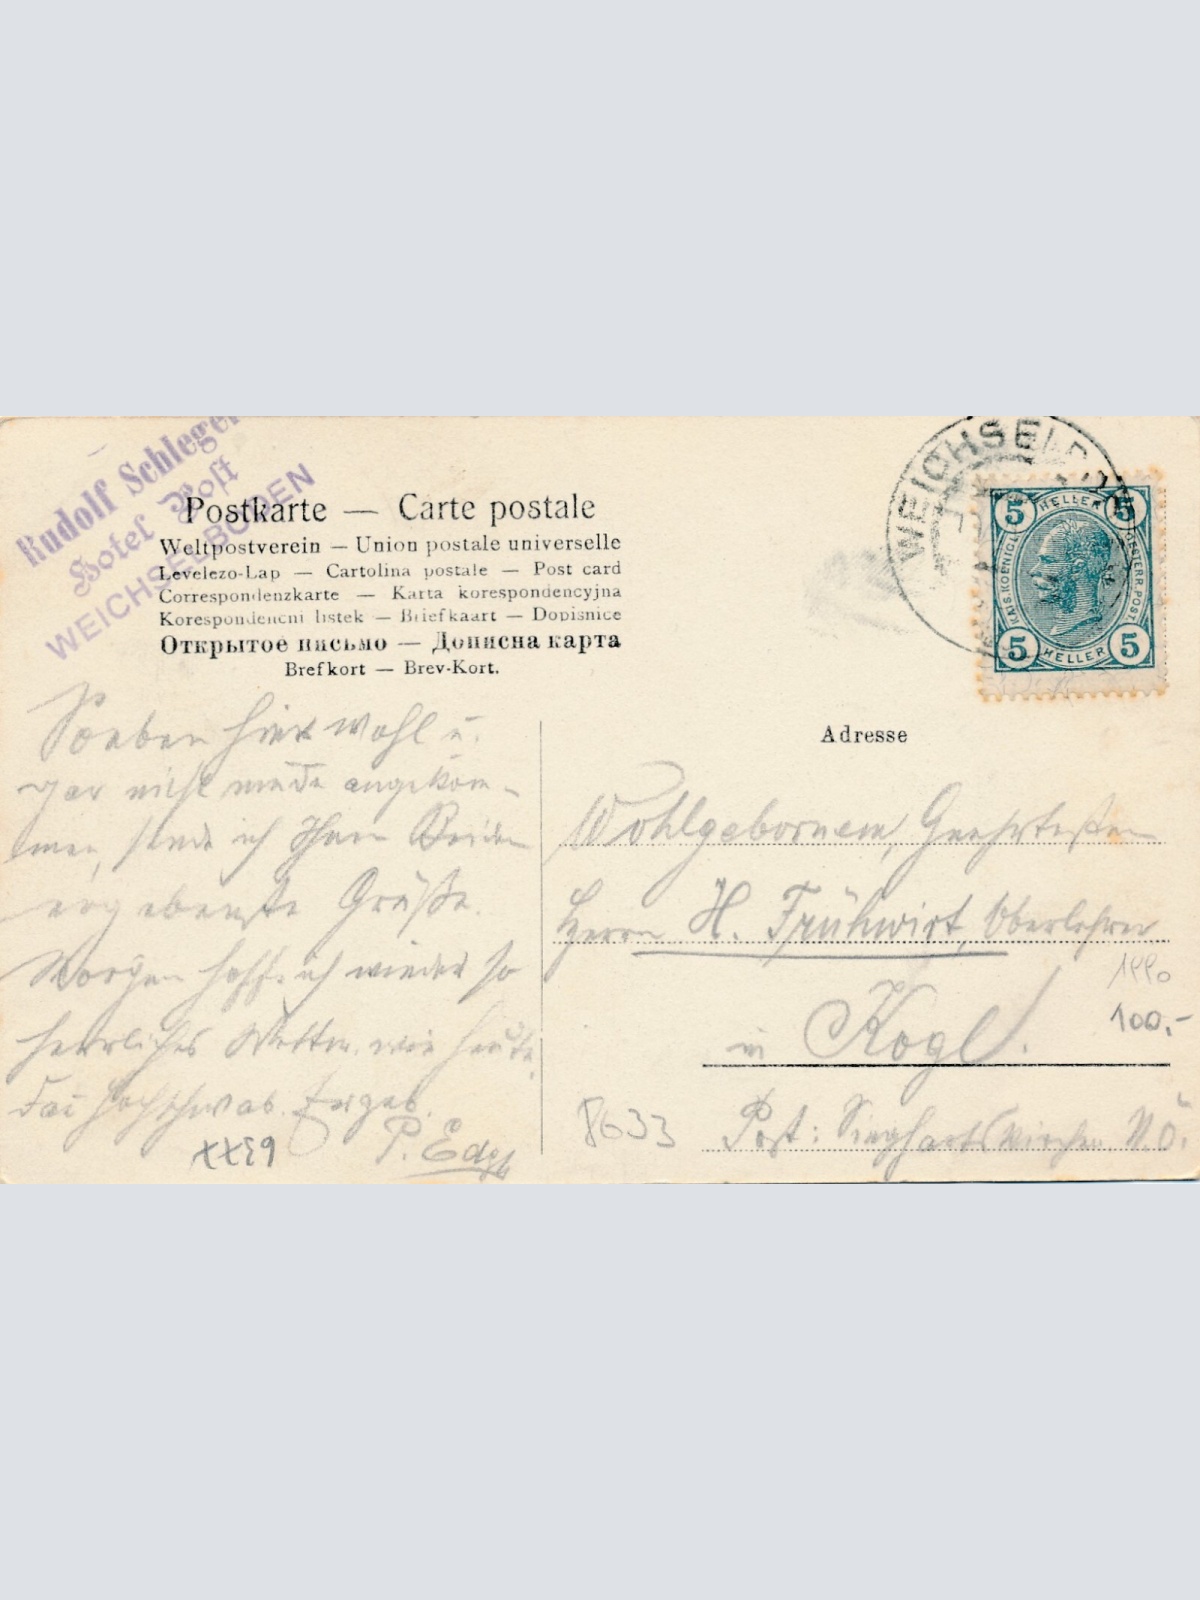 Rudolf Schleger
Hotel Post
WEICHSELBODEN
Postkarte — Carte postale
Weltpostverein — Union postale universelle
Levelezo-Lap — Cartolina postale — Post card
Correspondenzkarte — Karta korespondencyjna
Korespondencni listek — Briefkaart — Dopisnice
Открытое письмо — Дописна карта
Brefkort — Brev-Kort.
WEICHSELBOD
5 HELLER 5
KAIS. KOENIGL. OESTERR. POST
5 HELLER 5
Soeben hier wohl u.
gar nicht müde angekom-
men, sende ich Ihnen Beiden
ergebenste Grüße.
Morgen hoffe ich wieder so
herrliches Wetter wie heute.
Hochschwab. Ergeb.
P.
Adresse
Wohlgebornem, Geehrtesten
Herrn H. Frühwirt, Oberlehrer
in Kogl.
Post: Sieghartskirchen N.Ö.
100.-
8633